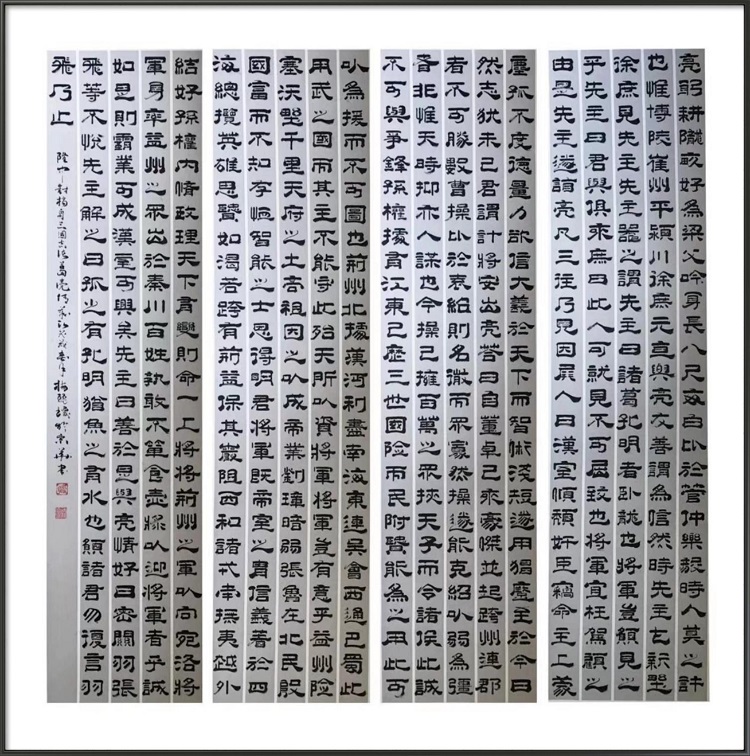 亮躬耕隴畝好為梁父吟身長八尺每自比於管仲樂毅時人莫之許
也惟博陵崔州平潁川徐庶元直與亮友善謂為信然時先主屯新野
徐庶見先主先主器之謂先主曰諸葛孔明者臥龍也將軍豈願見之
乎先主曰君與俱來庶曰此人可就見不可屈致也將軍宜枉駕顧之
由是先主遂詣亮凡三往乃見因屏人曰漢室傾頹奸臣竊命主上蒙
塵孤不度德量力欲信大義於天下而智術淺短遂用猖蹷至於今日
然志猶未已君謂計將安出亮答曰自董卓已來豪傑並起跨州連郡
者不可勝數曹操比於袁紹則名微而眾寡然操遂能克紹以弱為彊
者非惟天時抑亦人謀也今操已擁百萬之眾挾天子而令諸侯此誠
不可與爭鋒孫權據有江東已歷三世國險而民附賢能為之用此可
以為援而不可圖也荊州北據漢沔利盡南海東連吳會西通巴蜀此
用武之國而其主不能守此殆天所以資將軍將軍豈有意乎益州險
塞沃野千里天府之土高祖因之以成帝業劉璋暗弱張魯在北民殷
國富而不知存恤智能之士思得明君將軍既帝室之胄信義著於四
海總攬英雄思賢如渴若跨有荊益保其巖阻西和諸戎南撫夷越外
結好孫權內修政理天下有變則命一上將將荊州之軍以向宛洛將
軍身率益州之眾出於秦川百姓孰敢不簞食壺漿以迎將軍者乎誠
如是則霸業可成漢室可興矣先主曰善於是與亮情好日密關羽張
飛等不悅先主解之曰孤之有孔明猶魚之有水也願諸君勿復言羽
飛乃止
隆中對摘自三國志諸葛亮傳